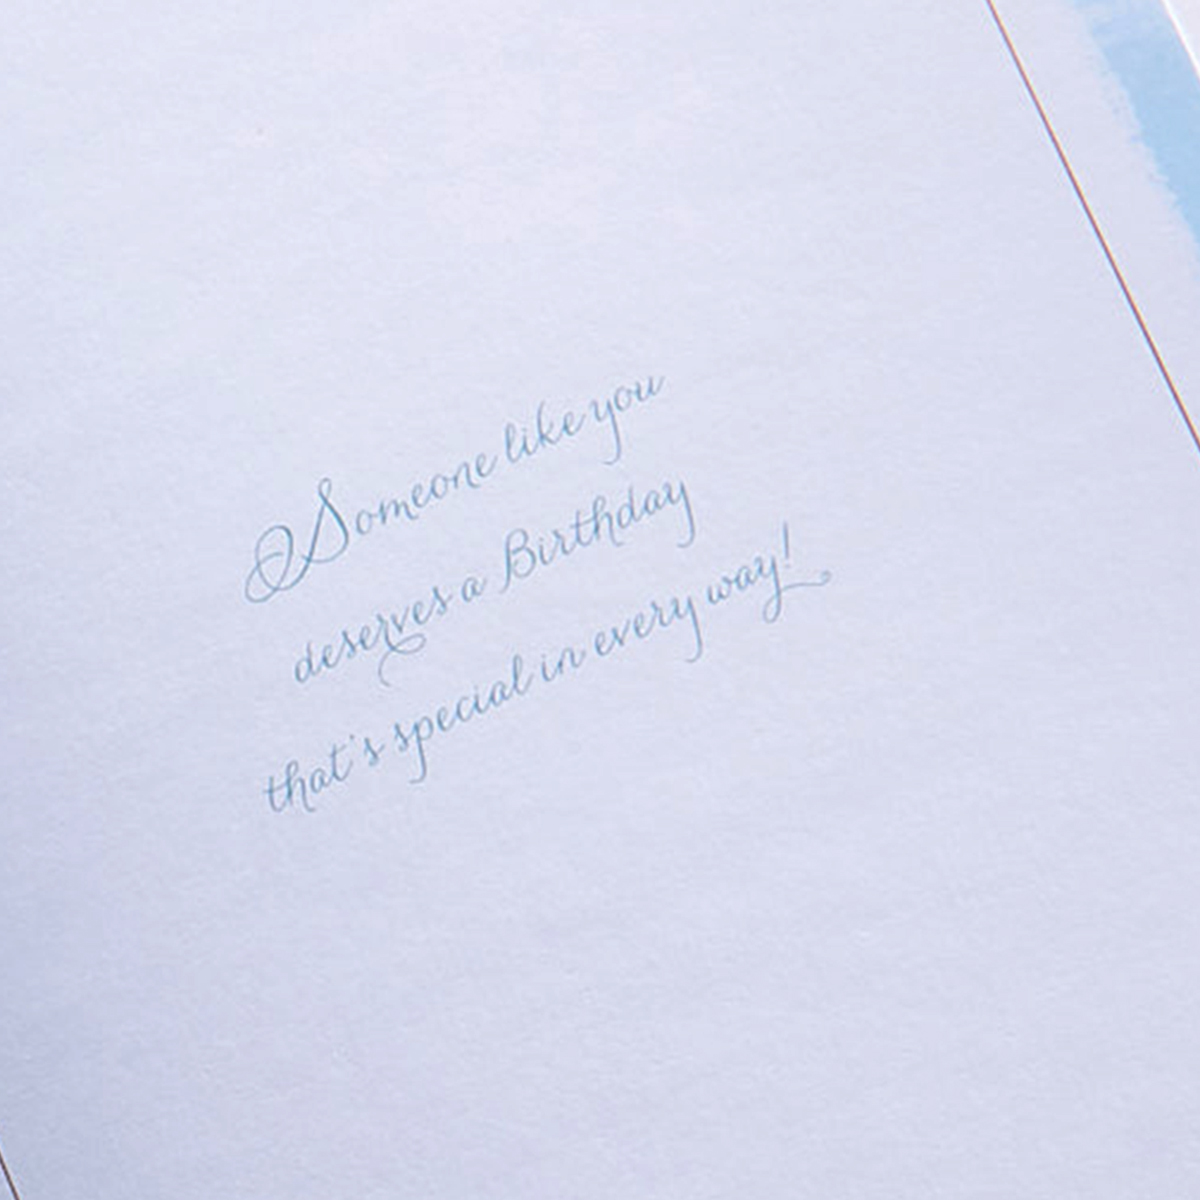 Someone like you
deserves a Birthday
that's special in every way!